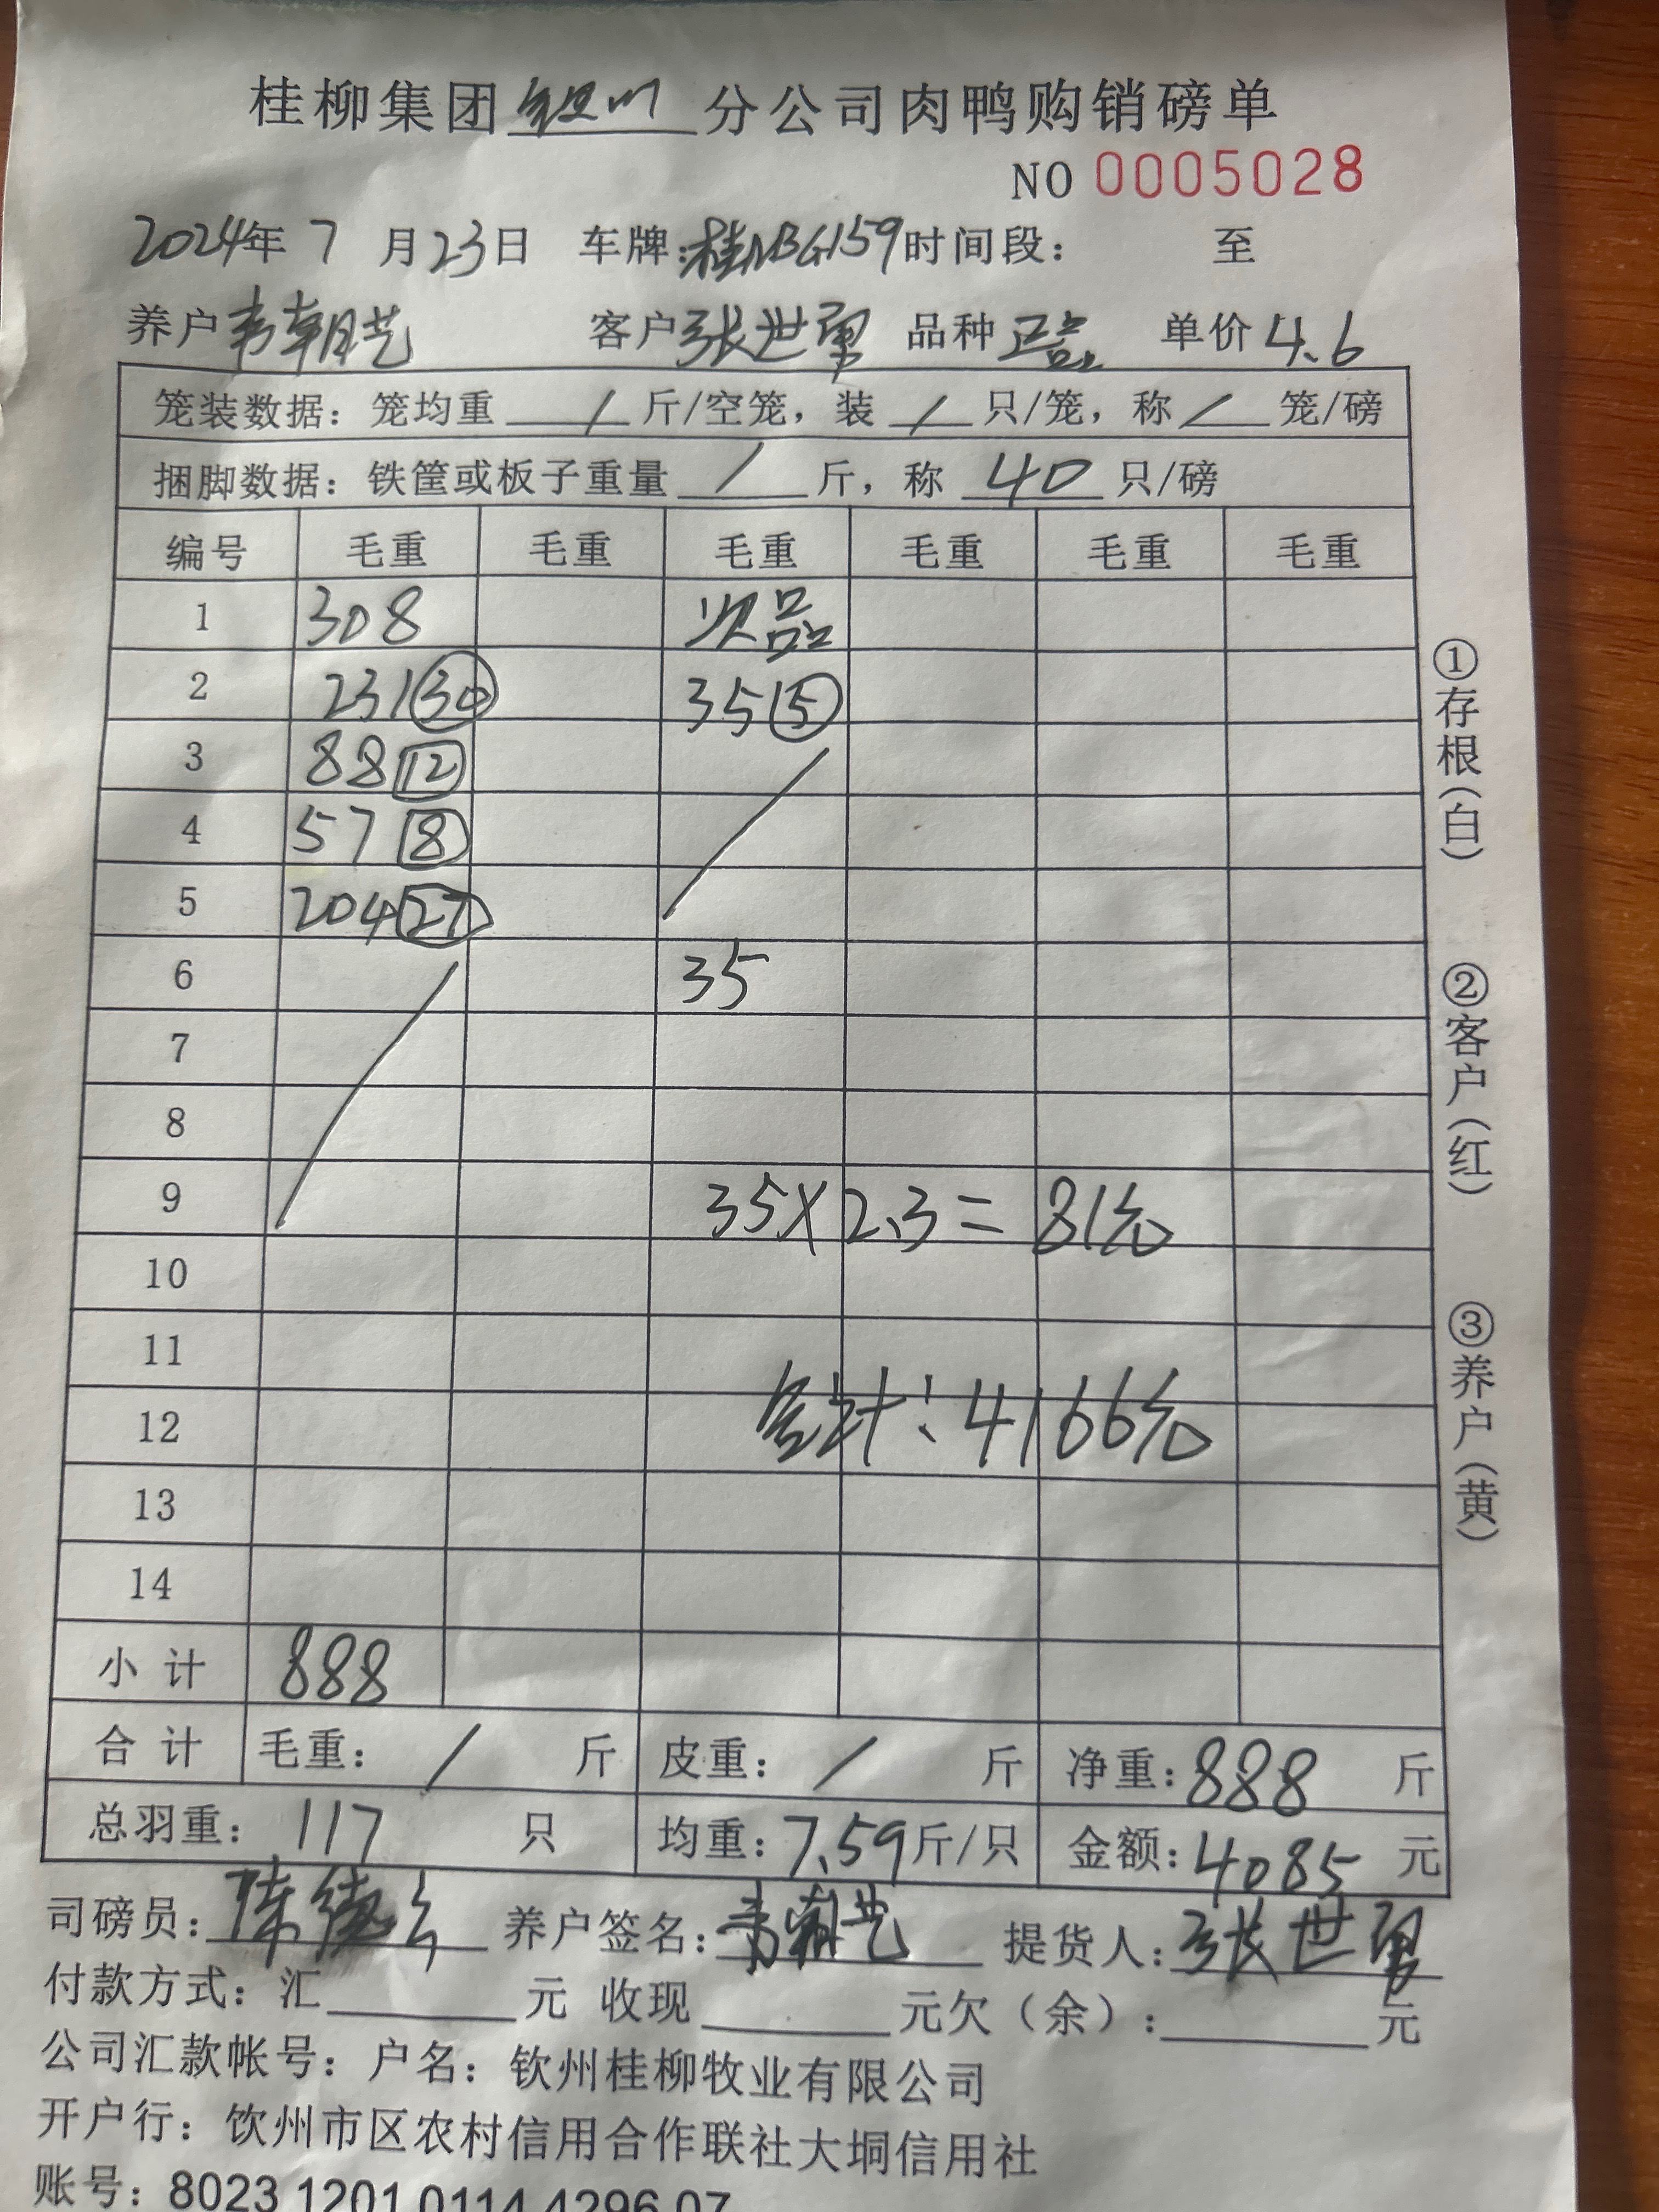 桂柳集团钦州分公司肉鸭购销磅单
NO 0005028
2024年7月23日 车牌:桂NBG159 时间段: 至
养户 韦朝艺 客户 张世勇 品种 正品 单价 4.6
笼装数据: 笼均重 / 斤/空笼, 装 / 只/笼, 称 / 笼/磅
捆脚数据: 铁筐或板子重量 / 斤, 称 40 只/磅
编号 毛重 毛重 毛重 毛重 毛重 毛重
1 308 次品
2 231 30 35 5
3 88 12
4 57 8
5 204 27
6 35
7
8
9 35×2.3=81元
10
11
12 合计:4166元
13
14
小计 888
合计 毛重: / 斤 皮重: / 斤 净重:888 斤
总羽重: 117 只 均重:7.59斤/只 金额:4085 元
司磅员: 陈德 养户签名: 韦朝艺 提货人: 张世勇
付款方式: 汇 元 收现 元欠(余): 元
公司汇款帐号: 户名: 钦州桂柳牧业有限公司
开户行: 饮州市区农村信用合作联社大垌信用社
账号: 8023 1201 0114 4296 07
①存根(白)
②客户(红)
③养户(黄)